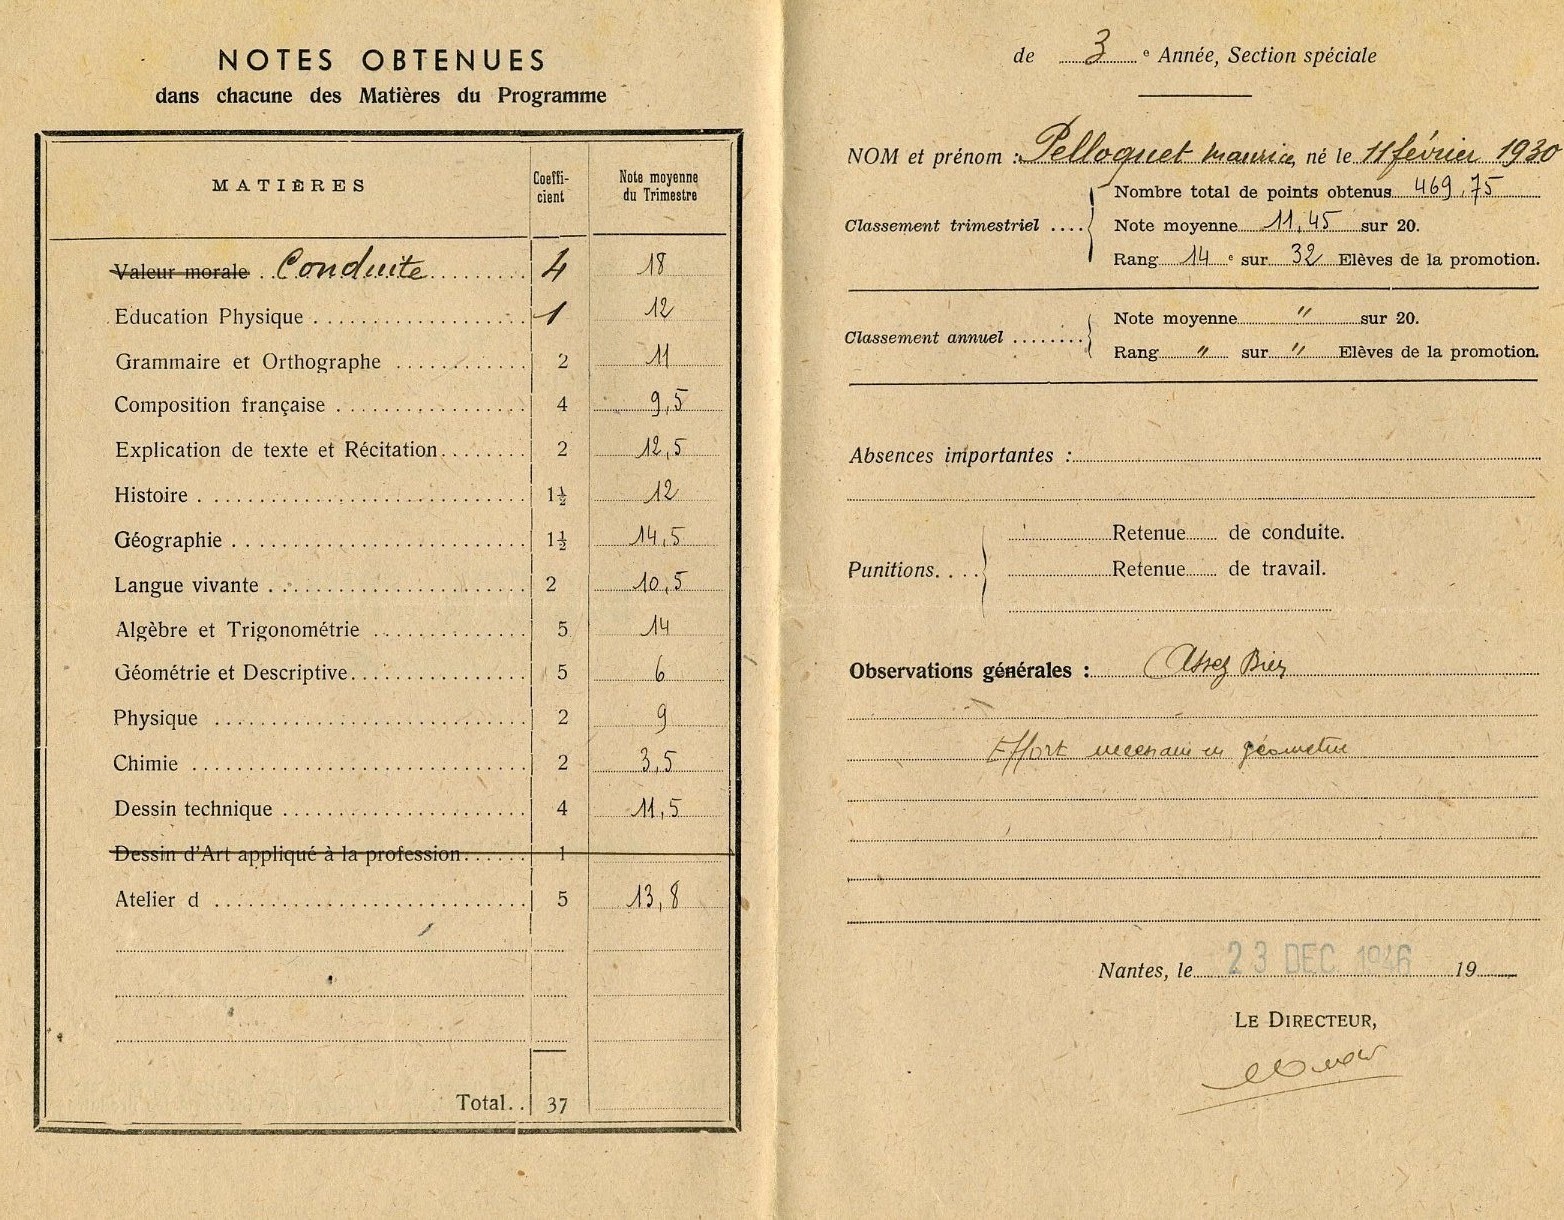 NOTES OBTENUES
dans chacune des Matières du Programme
MATIÈRES Coeffi-cient Note moyenne du Trimestre
Valeur morale Conduite 4 18
Education Physique 1 12
Grammaire et Orthographe 2 11
Composition française 4 9,5
Explication de texte et Récitation 2 12,5
Histoire 1½ 12
Géographie 1½ 14,5
Langue vivante 2 10,5
Algèbre et Trigonométrie 5 14
Géométrie et Descriptive 5 6
Physique 2 9
Chimie 2 3,5
Dessin technique 4 11,5
Dessin d'Art appliqué à la profession 1
Atelier d 5 13,8
Total 37
de 3 e Année, Section spéciale
NOM et prénom : Pelloquet Maurice, né le 11 février 1930
Nombre total de points obtenus 469,75
Classement trimestriel .... Note moyenne 11,45 sur 20.
Rang 14 e sur 32 Elèves de la promotion.
Note moyenne " sur 20.
Classement annuel ........
Rang " sur " Elèves de la promotion.
Absences importantes :
Retenue de conduite.
Punitions....
Retenue de travail.
Observations générales : Assez Bien
Effort necessaire en géometrie
Nantes, le 23 DEC 1946 19
LE DIRECTEUR,